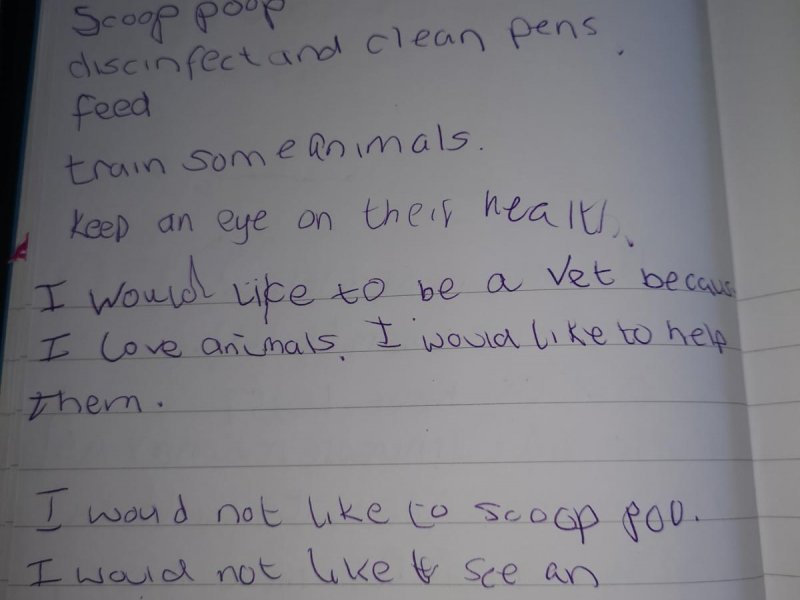 Scoop poop
discinfect and clean pens.
feed
train some animals.
Keep an eye on their health.
I would like to be a vet becaus
I love animals. I would like to help
them.
I would not like to scoop poo.
I would not like to see an